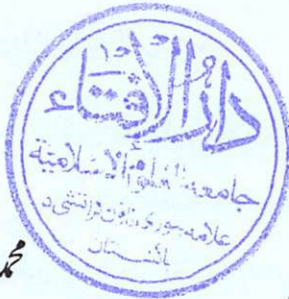 دارالافتاء
جامعة العلوم الاسلامية
علامه بنوری تاؤن کراتشی ۵
باکستان
محمد